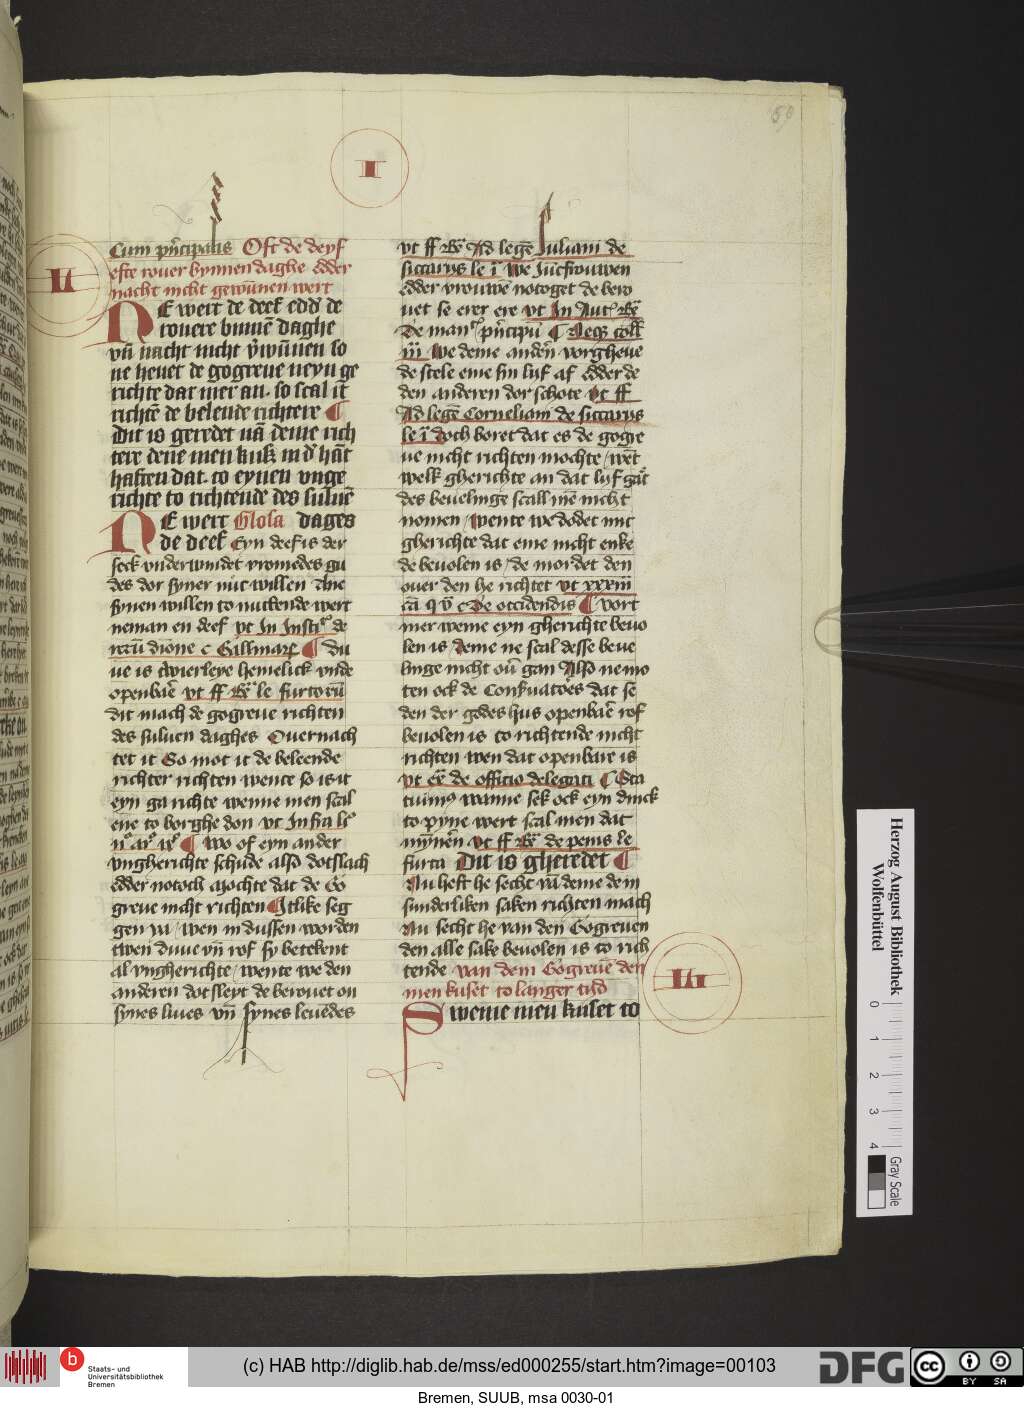 59
I
Cum pncipalis Oft de deyf
efte rouer bynnen daghe edder
nacht nicht gewunen wert
LI
NE wert de deef edd de
rouere binne daghe
vn nacht nicht vwunnen so
ne hevet de gogreue neyn ge
richte dar mer an. so scal it
richte de belende richtere ¶
Dit is geredet va deme rich
tere dene men kusz in d hat
haften dat. to eynen vnge
richte to richtende des suluen
NE wert Glosa dages
de deef Eyn deef is der
seck vnderwindet vromedes gu
des dor syner nut willen ane
synen willen to nuttende wert
neman en deef vt In Insti de
¶ Du
ue is twierleye hemelick vnde
openbare vt ff le furtoru
dit mach de gogreue richten
des suluen daghes Ouernach
tet it So mot it de beleende
richter richten wente so is it
eyn ga richte wenne men scal
ene to borghe don vt Infra
¶ wo of eyn ander
vngherichte schude also dotslach
edder notoch mochte dat de Go
greue nicht richten ¶ Etlike seg
gen ya / wen in dussen worden
twen duue vn rof sy betekent
al vngherichte / wente we den
anderen dot sleyt de berouet on
synes liues vn synes leuedes
vt ff Ad lege Iuliam de
siccarys le i We Jucfrouwen
edder vrouwe notoget de bero
uet se erer ere vt In Aut
de man pncipu ¶
iii We deme anden vorgheue
de stele eme sin lyf af Edder de
den anderen dor schote vt ff
Ad lege Corneliam de siccarys
le i doch boret dat es de gogre
ue nicht richten mochte / wet
welk gherichte an dat lyf gat
des beuelinge scall me nicht
nomen / wente we dodet mit
gherichte dat eme nicht enke
de beuolen is / de mordet den
ouer den he richtet vt xxxiii
ca q v c De occidendis ¶ vort
mer weme eyn gherichte beuo
len is / deme ne scal desse beue
linge nicht ou gan Also ne mo
ten ock de Conseruatores dat se
den der godes hus openbare rof
beuolen is to richtende nicht
richten wen dat openbare is
vt ex de officio delegati ¶ Sta
tuimus wanne sek ock eyn dinck
to pyne wert scal men dat
mynen vt ff de penis le
furta Dit is gheredet ¶
Nu heft he secht va deme dem
sunderliken saken richten mach
Nu secht he van den Gogreuen
den alle sake beuolen is to rich
tende van dem Gogreue den
men kuset to langer tijd
LII
Sweme men kuset to
Herzog August Bibliothek
Wolfenbüttel
0 1 2 3 4
Gray Scale
b
Staats- und
Universitätsbibliothek
Bremen
(c) HAB http://diglib.hab.de/mss/ed000255/start.htm?image=00103
DFG
cc BY SA
Bremen, SUUB, msa 0030-01